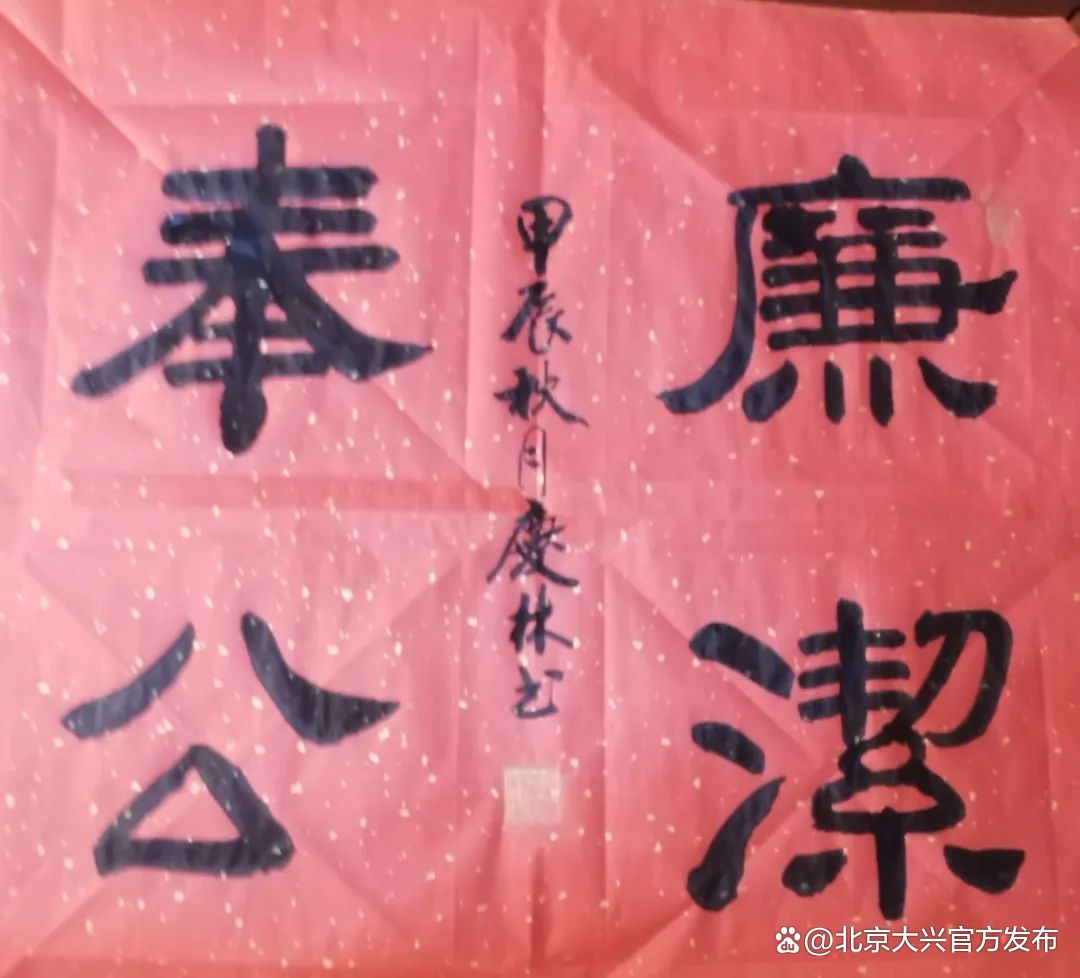 廉潔
奉公
甲辰秋月慶林书
@北京大兴官方发布